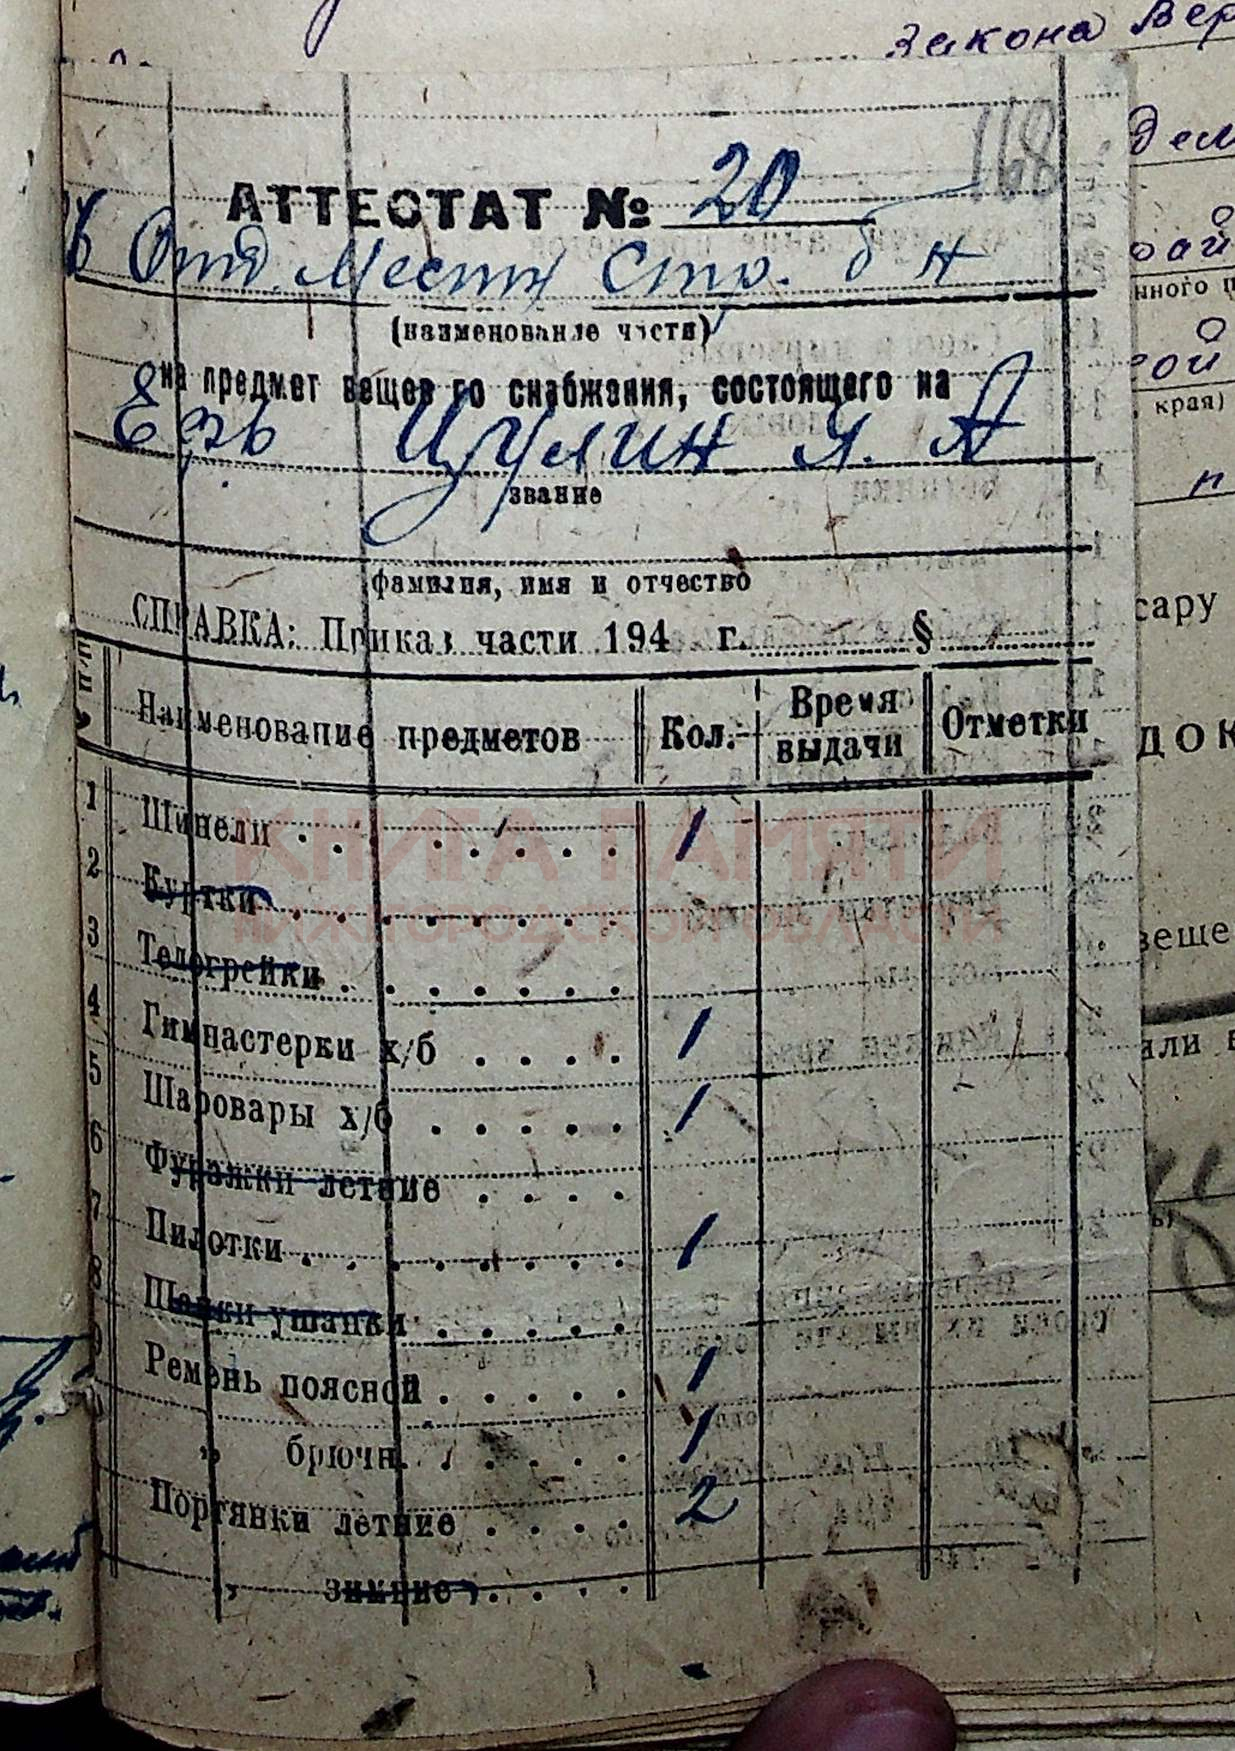 закона Вер
168
АТТЕСТАТ № 20
Отд. Местн Стр. б н
(наименование части)
на предмет вещевого снабжения, состоящего на
Цулин И. А
звание
фамилия, имя и отчество
СПРАВКА: Приказ части 194 г. §
Наименование предметов Кол. Время выдачи Отметки
1 Шинели 1
2 Куртки
3 Телогрейки
4 Гимнастерки х/б 1
5 Шаровары х/б 1
6 Фуражки летние
7 Пилотки 1
8 Шапки ушанки
9 Ремень поясной 1
„ брючн. 1
Портянки летние 2
„ зимние
КНИГА ПАМЯТИ
НИЖЕГОРОДСКОЙ ОБЛАСТИ
края)
сару
ДОК
веще
или в